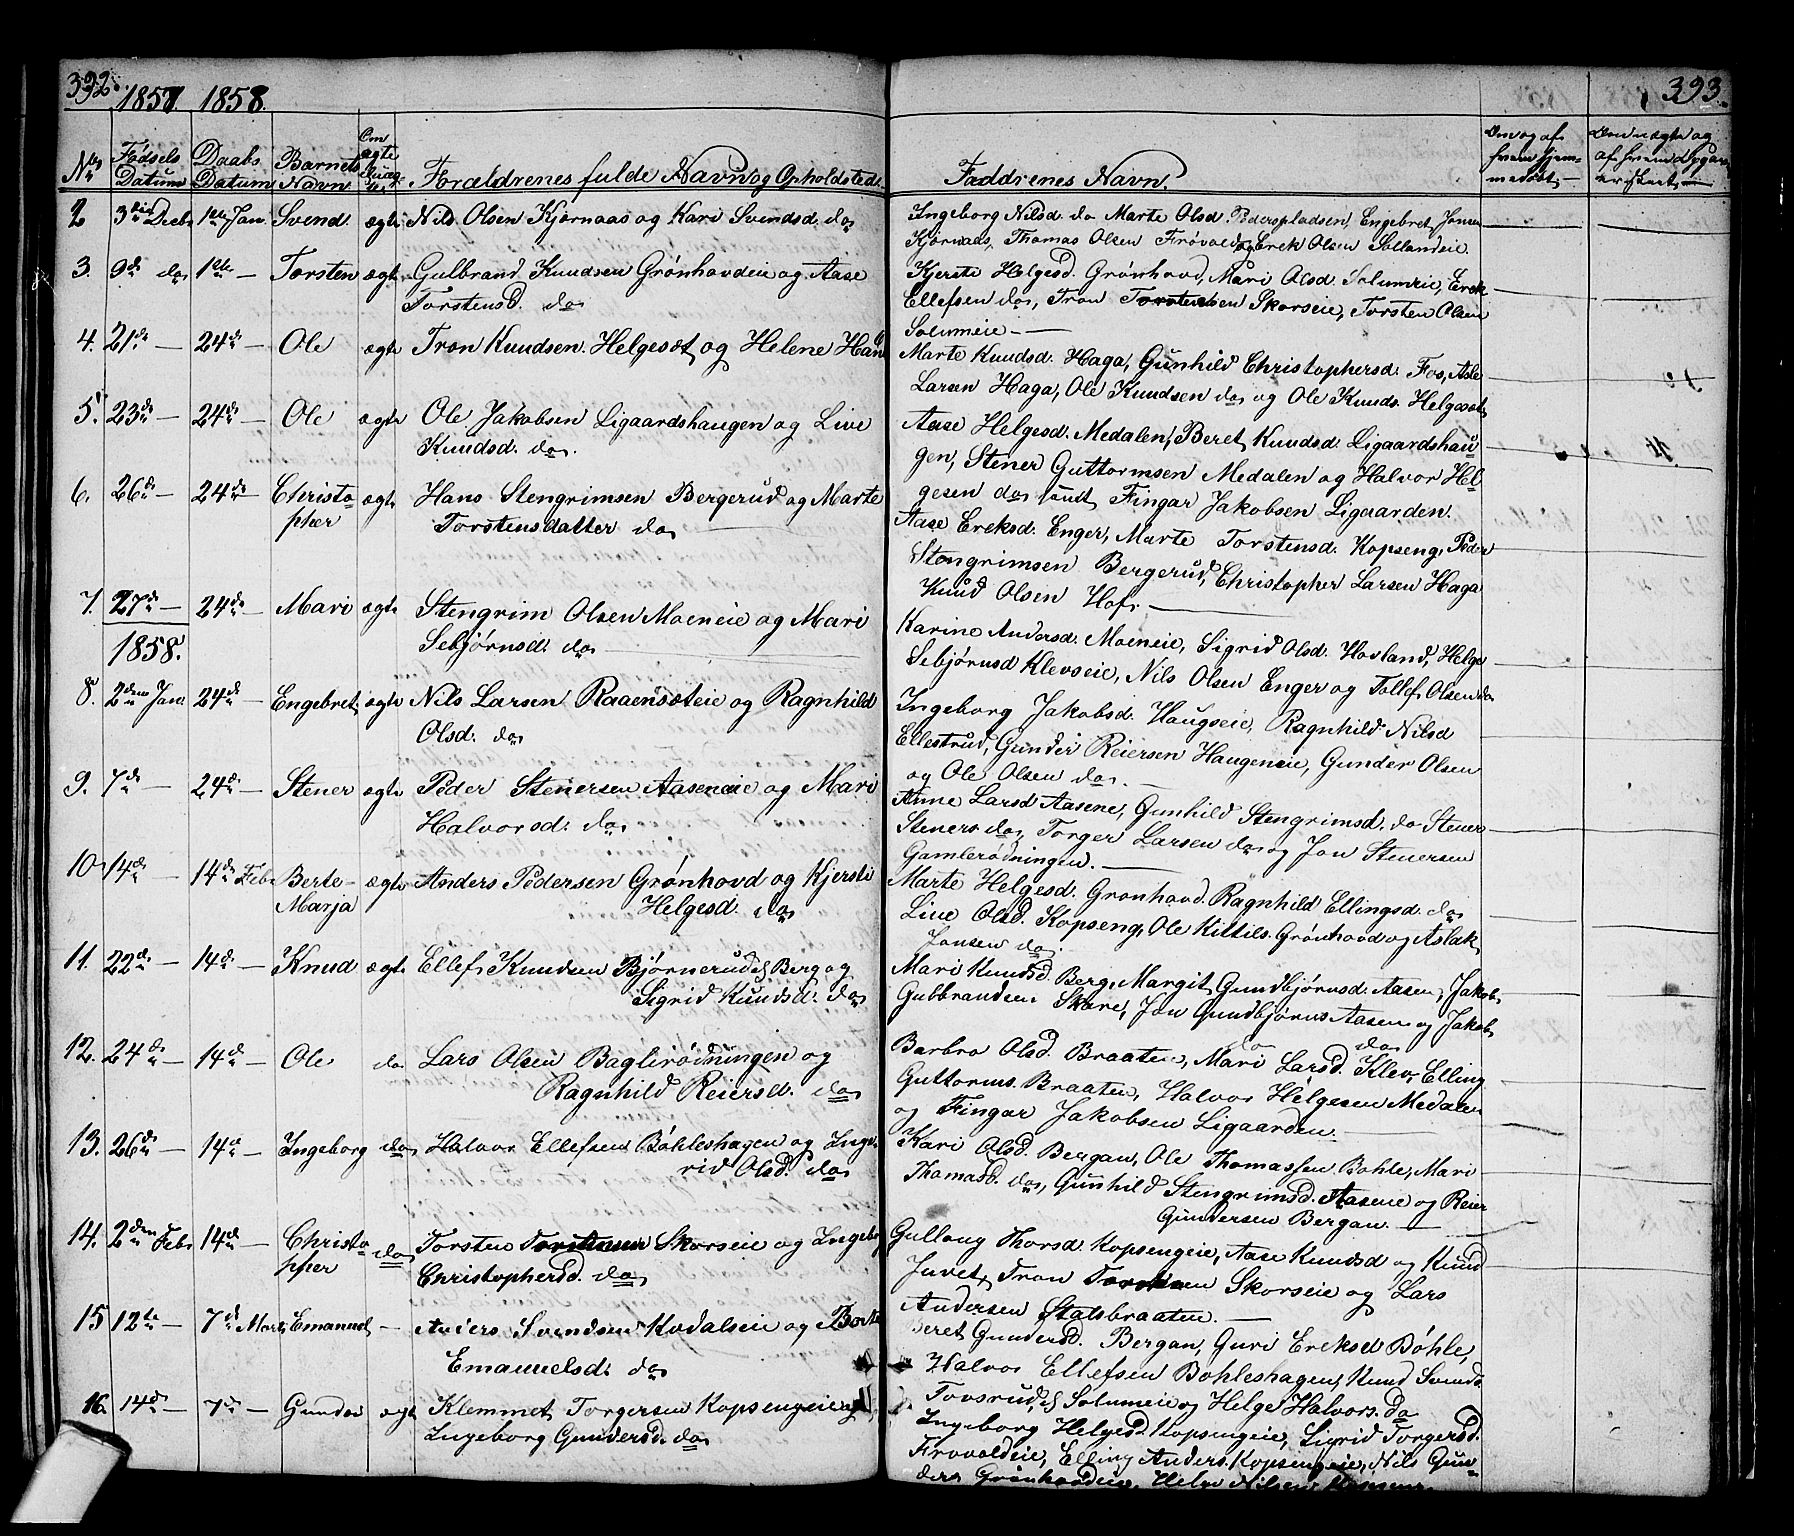 392. 1857 1858.
No. Fødsels Datum Daabs Datum Barnets Navn Om ægte Forældrenes fulde Navn og Opholdsted.
2 3die Decbr 1ste Jan. Svend. ægte Nils Olsen Kjørnaas og Kari Svendsd. do
3. 9de do 1ste — Torsten ægte Gulbrand Knudsen Grønhovdeie og Aase
Torstensd. do
4. 21de — 24de — Ole ægte Tron Knudsen Helgeset og Helene
5. 23de — 24de — Ole ægte Ole Jakobsen Ligaardshaugen og Live
Knudsd. do.
6. 26de — 24de — Christo ægte Hans Stengrimsen Bergerud og Marte
pher Torstensdatter do
7. 27de — 24de — Mari ægte Stengrim Olsen Moeneie og Mari
1858. Sebjørnsd. do
8. 2den Jan. 24de Engebret ægte Nils Larsen Raaenseteie og Ragnhild
Olsd. do
9. 7de — 24de — Stener ægte Peder Stenersen Aaseneie og Mari
Halvorsd. do
10 14de — 14de Feb. Berte- ægte Anders Pedersen Grønhovd og Kjersti
Marja Helgesd. do
11. 22de — 14de — Knud ægte Ellef Knudsen Bjørnerud Berg og
Sigrid Knudsd. do
12. 24de — 14de — Ole do Lars Olsen Baglerødningen og
Ragnhild Reiersd. do
13. 26de — 14de — Ingeborg do Halvor Ellefsen Bøhleshagen og Inge-
rid Olsd. do
14. 2den Febr 14de — Christo do Torsten Skorseie og Ingeborg
pher Christophersd. do
15 12te — 7de Marts Emanuel — Anders Svendsen Kodalseie og
Emanuelsd. do
16. 14de — 7de — Gunder ægte Klemmet Torgersen Kopsengeie og
Ingeborg Gundersd. do
393.
Faddrenes Navn. Om og af hvem hjem-
medøbt. —
Ingeborg Nilsd. do Marte Olsd. Pederspladsen, Engebret Jonsen
Kjørnaas, Thomas Olsen Frøvold og Erek Olsen Sollandeie.
Kjerste Helgesd. Grønhovd, Mari Olsd. Solumeie, Erek
Ellefsen do, Tron Skorseie, Torsten Olsen
Solumeie —
Marte Knudsd. Haga, Gunhild Christophersd. Fos, Asle
Larsen Haga, Ole Knudsen do og Ole Knuds. Helgeset
Aase Helgesd. Medalen, Beret Knudsd. Ligaardshau
gen, Stener Guttormsen Medalen og Halvor Hel
gesen do samt Fingar Jakobsen Ligaarden.
Aase Ereksd. Enger, Marte Torstensd. Kopseng, Peder
Stengrimsen Bergerud, Christopher Larsen Haga
Knud Olsen Hof. —
Karine Andersd. Moeneie, Sigrid Olsd. Hovland, Helge
Sebjørnsd Klevseie, Nils Olsen Enger og Tollef Olsen do
Ingeborg Jakobsd. Haugseie, Ragnhild Nilsd
Ellestrud, Gunder Reiersen Haugeneie, Gunder Olsen
og Ole Olsen do. —
Anne Larsd Aasene, Gunhild Stengrimsd. do Stener
Steners do, Torger Larsen do og Jon Stenersen
Gamlerødningen. —
Marte Helgesd. Grønhovd. Ragnhild Ellingsd. do
Live Olsd. Kopseng, Ole Kittils. Grønhovd og Aslak
Jonsen do.
Mari Knudsd. Berg, Margit Gundbjørnsd. Aasen, Jakob
Gulbrandsen Skare, Jon Gundbjørns Aasen og Jakob
do do
Barbro Olsd. Braaten, Mari Larsd. Klev, Elling
Guttorms. Braaten, Halvor Helgesen Medalen
og Fingar Jakobsen Ligaarden. —
Kari Olsd. Bergan, Ole Thomassen Bøhle, Mari
Thomasd. do, Gunhild Stengrimsd. Aasene og Reier
Gundersen Bergan. —
Gullaug Thorsd Kopsengeie, Aase Knudsd og Knud
Juvet, Tron Skorseie og Lars
Andersen Statsbraaten. —
Beret Gundersd. Bergan, Guri Ereksd Bøhle,
Halvor Ellefsen Bøhleshagen, Knud Svends.
Tovsrud, Solumeie og Helge Halvors. do
Ingeborg Helgesd. Kopsengeie, Sigrid Torgersd.
Frøvoldeie, Elling Anders. Kopsengeie, Nils Gun-
ders Grønhovdeie, Helge Nilsen